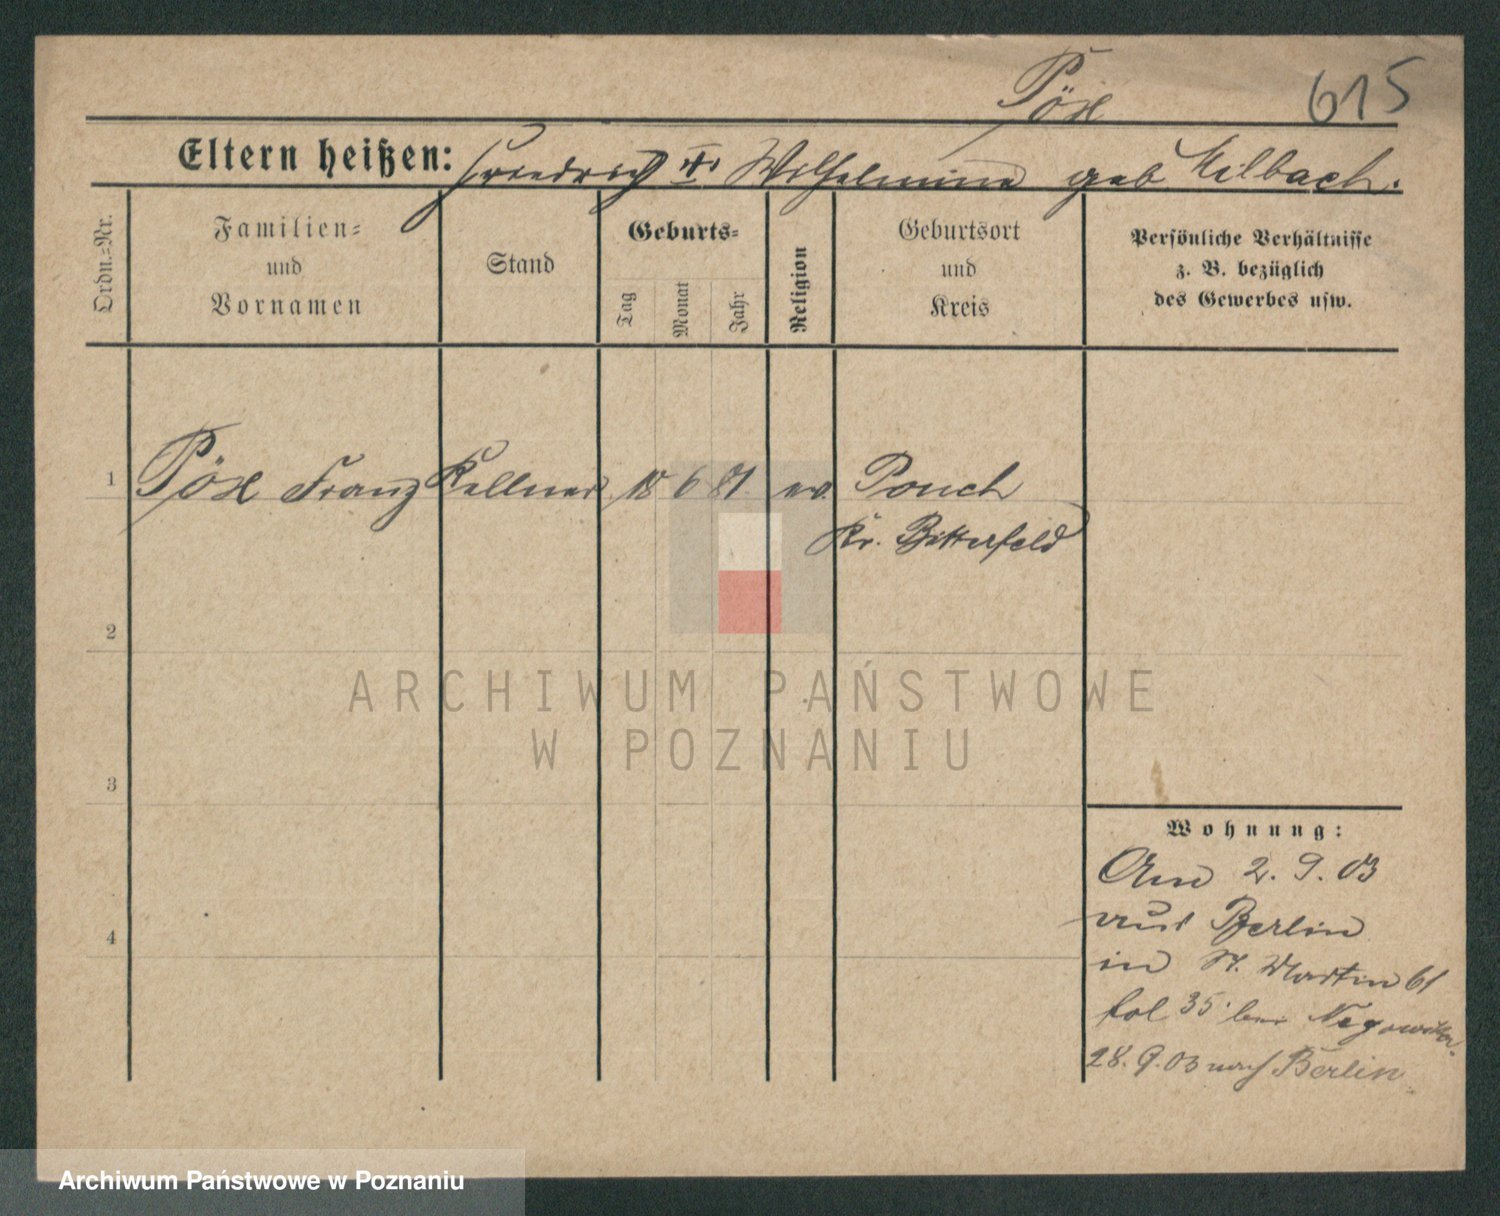 Pöxl 615
Eltern heißen: Friedrich u. Wilhelmine geb Milbach.
Ordn.-Nr.
Familien- und Vornamen
Stand
Geburts-
Tag
Monat
Jahr
Religion
Geburtsort und Kreis
Persönliche Verhältnisse
z. B. bezüglich
des Gewerbes usw.
1 Franz Kellner 18 6 81 ev. Pouch
Kr. Bitterfeld
2
ARCHIWUM PAŃSTWOWE
W POZNANIU
3
Wohnung:
An 2. 9. 03
aus Berlin
4
in St. Martin 61
fol 35 bei
28. 9. 03 nach Berlin
Archiwum Państwowe w Poznaniu